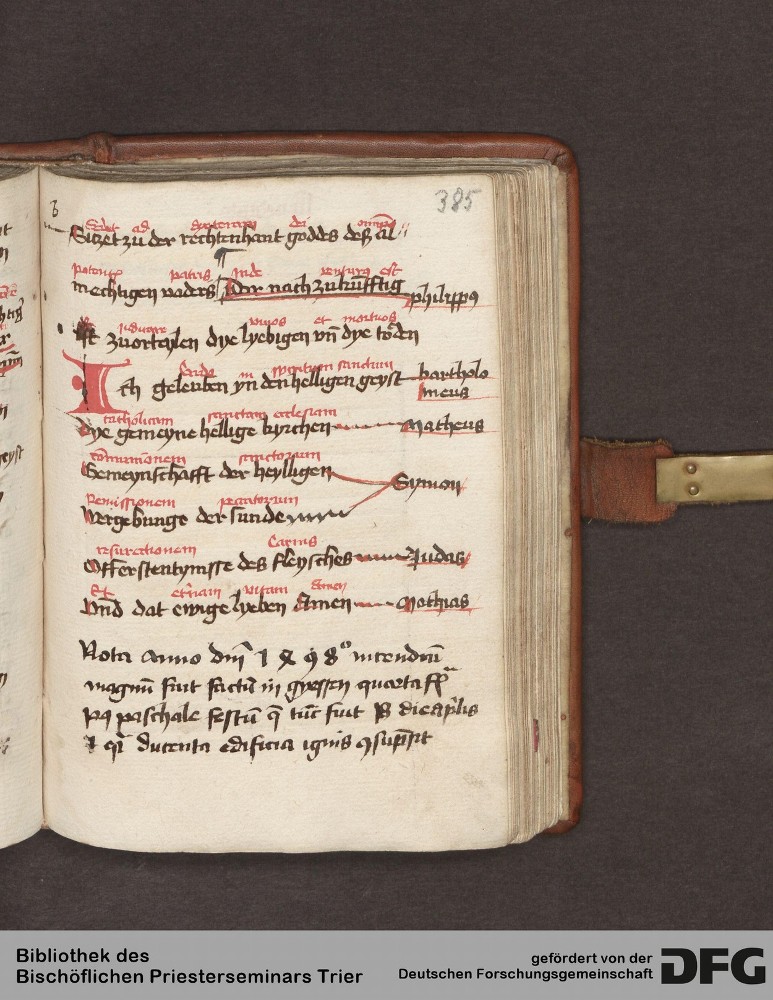 385
Sedet ad dexteram dei omnip
Sitzet zu der rechtenhant goddes des al
potentis patris Inde venturus est
mechtigen vaders Der nach zukūfftig philippꝯ
iudicare viuos et mortuos
Ist zuorteylen dye lyebigen vn̄ dye toden
Credo in spiritum sanctum
Ich geleuben yn den helligen geyst bartholo
meus
catholicam sanctam ecclesiam
Dye gemeyne hellige kyrchen Matheus
cōmunionem sanctorum
Gemeynschafft der heylligen
Symon
Remissionem peccatorum
Vergebunge der sunde
resurectionem Carnis
Offerstentynisse des fleysches Judas
Et eternam vitam Amen
Vnd dat ewige lyeben Amen Mathias
Nota Anno dn̄i 1 8° incendiū
magnū fuit factū in gyessen quarta
paschale festū q̄ tūc fuit die aplis
ducenta edificia ignis
Bibliothek des
Bischöflichen Priesterseminars Trier
gefördert von der
Deutschen Forschungsgemeinschaft
DFG